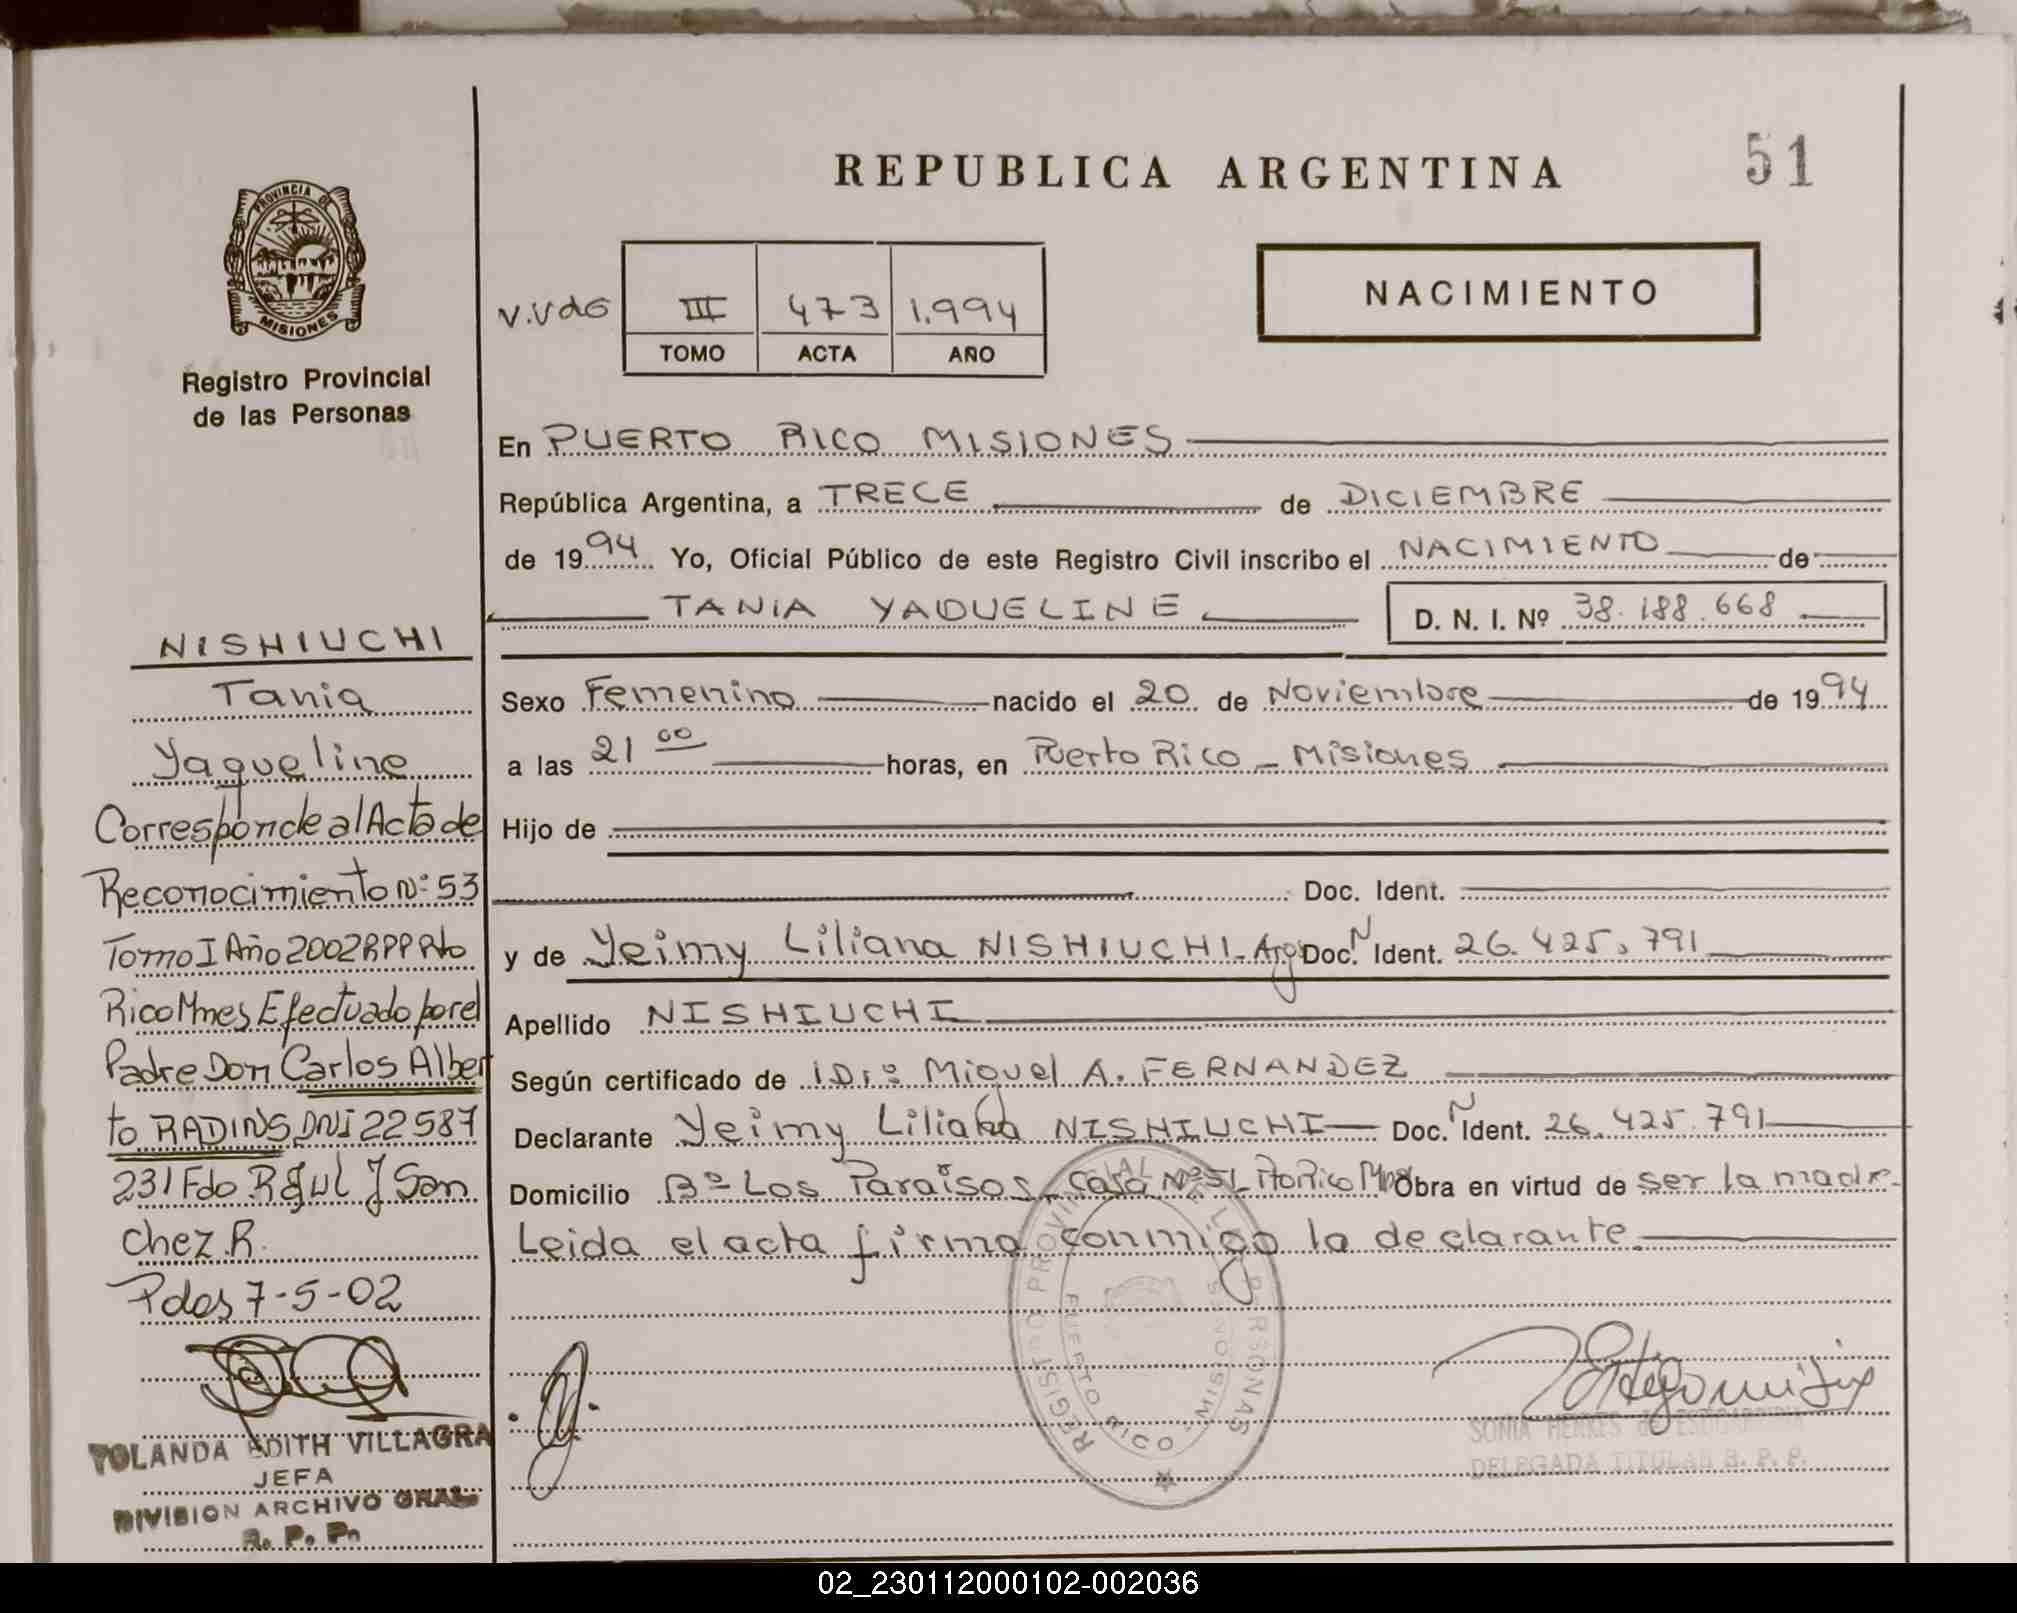 51
REPUBLICA ARGENTINA
PROVINCIA DE
MISIONES
Registro Provincial
de las Personas
NACIMIENTO
III 473 1.994
TOMO ACTA AÑO
En PUERTO RICO MISIONES
República Argentina, a TRECE de DICIEMBRE
de 1994 Yo, Oficial Público de este Registro Civil inscribo el NACIMIENTO de
TANIA YAQUELINE D. N. I. Nº 38.188.668
Sexo Femenino nacido el 20 de Noviembre de 1994
a las 21 00 horas, en Puerto Rico - Misiones
Hijo de
Doc. Ident.
y de Yeimy Liliana NISHIUCHI - Arg Doc. N Ident. 26.425.791
Apellido NISHIUCHI
Según certificado de Miguel A. FERNANDEZ
Declarante Yeimy Liliana NISHIUCHI Doc. N Ident. 26.425.791
Domicilio Bº Los Paraisos, Casa Nº Pto Rico Mnes Obra en virtud de ser la madre.
Leida el acta firma conmigo la declarante.
REGISTRO PROVINCIAL DE LAS PERSONAS
PUERTO RICO - MISIONES
SONIA HERKES de
DELEGADA TITULAR R. P. P.
NISHIUCHI
Tania
Yaqueline
Corresponde al Acta de
Reconocimiento Nº 53
Tomo I Año 2002 RPP Pto
Rico Mnes Efectuado por el
Padre Don Carlos Alber
to RADINS DNI 22587
231 Fdo. R J San
chez R.
Pdas 7-5-02
YOLANDA EDITH VILLAGRA
JEFA
DIVISION ARCHIVO GRAL
R. P. P.
02_230112000102-002036